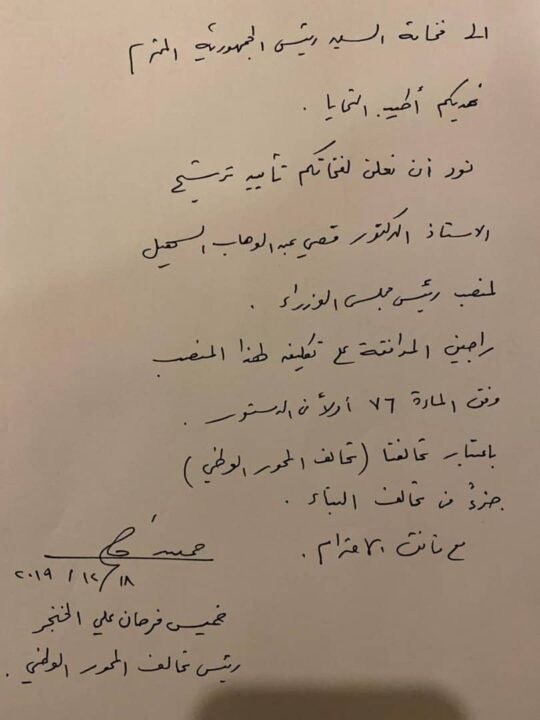 الى فخامة السيد رئيس الجمهورية المحترم
نهديكم أطيب التحايا .
نود أن نعلن لفخامتكم تأييد ترشيح
الاستاذ الدكتور قصي عبد الوهاب السهيل
لمنصب رئيس مجلس الوزراء .
راجين الموافقة على تكليفه لهذا المنصب
وفق المادة ٧٦ أولاً من الدستور .
باعتبار تحالفنا (تحالف المحور الوطني)
جزءً من تحالف البناء .
مع فائق الاحترام .
٢٠١٩ / ١٢ / ١٨
خميس فرحان علي الخنجر
رئيس تحالف المحور الوطني .